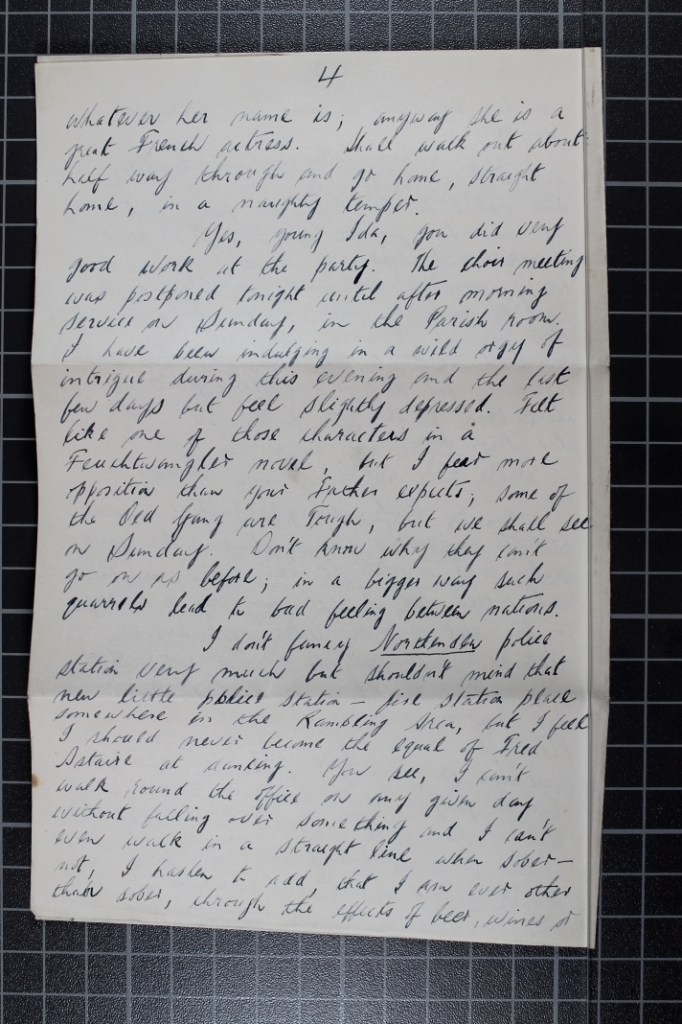 4
whatever her name is; anyway she is a
great French actress. Shall walk out about
half way through and go home, straight
home, in a naughty temper.
Yes, young Ida, you did very
good work at the party. The choir meeting
was postponed tonight until after morning
service on Sunday, in the Parish room.
I have been indulging in a wild orgy of
intrigue during this evening and the last
few days but feel slightly depressed. Felt
like one of those characters in a
Feuchtwangler novel, but I fear more
opposition than your Father expects; some of
the Old Gang are Tough, but we shall see
on Sunday. Don't know why they can't
go on as before; in a bigger way such
quarrels lead to bad feeling between nations.
I don't fancy Northenden police
station very much but shouldn't mind that
new little police station - fire station place
somewhere in the Rambling Area, but I feel
I should never become the equal of Fred
Astaire at dancing. You see, I can't
walk round the office on any given day
without falling over something and I can't
even walk in a straight line when sober -
not, I hasten to add, that I am ever other
than sober, through the effects of beer, wines or